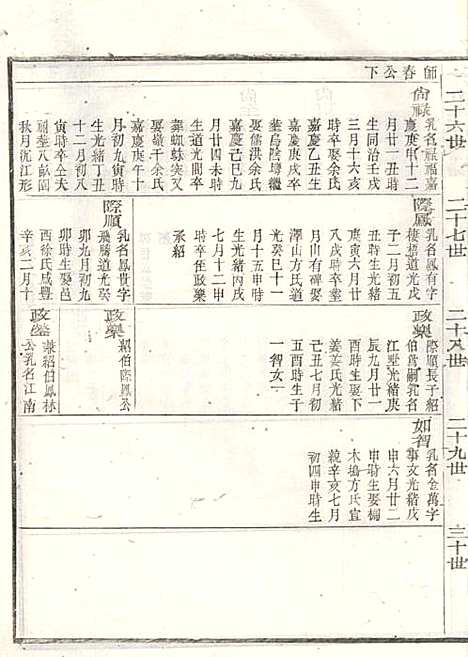 師春公下
二十六世
尙祿
乳名添福嘉
慶庚申十二
月廿一丑時
生同治壬戌
三月十六亥
時卒娶余氏
嘉慶乙丑生
嘉慶庚辰卒
塟烏陰塆繼
娶儒洪余氏
嘉慶己巳九
月廿四未時
生道光間卒
塟蜘蛛尖又
娶嶺干余氏
嘉慶庚午十
月初九寅時
生光緒丁丑
十二月初八
寅時卒仝夫
秋月沉江形
二十七世
際鳳
乳名鳳有字
棲梧道光戊
子二月初五
丑時生光緒
庚寅六月廿
八戌時卒塟
月山有碑娶
澤山方氏道
光癸巳十一
月十五申時
生光緒丙戌
七月十二申
時卒侄政樂
承紹
際順
乳名鳳貴字
飛騰道光癸
卯九月初九
卯時生娶邑
西徐氏咸豐
辛亥二月十
二十八世
政樂
際順長子紹
伯爲嗣乳名
江墅光緒庚
辰九月廿一
酉時生娶下
姜姜氏光緒
己丑七月初
五酉時生子
一智女一
政樂
紹伯際鳳公
政塟
兼紹伯鳳林
公乳名江南
二十九世
如智
乳名金萬字
事文光緒戊
申六月廿二
申時生娶楊
木塢方氏宣
統辛亥七月
初四申時生
三十世